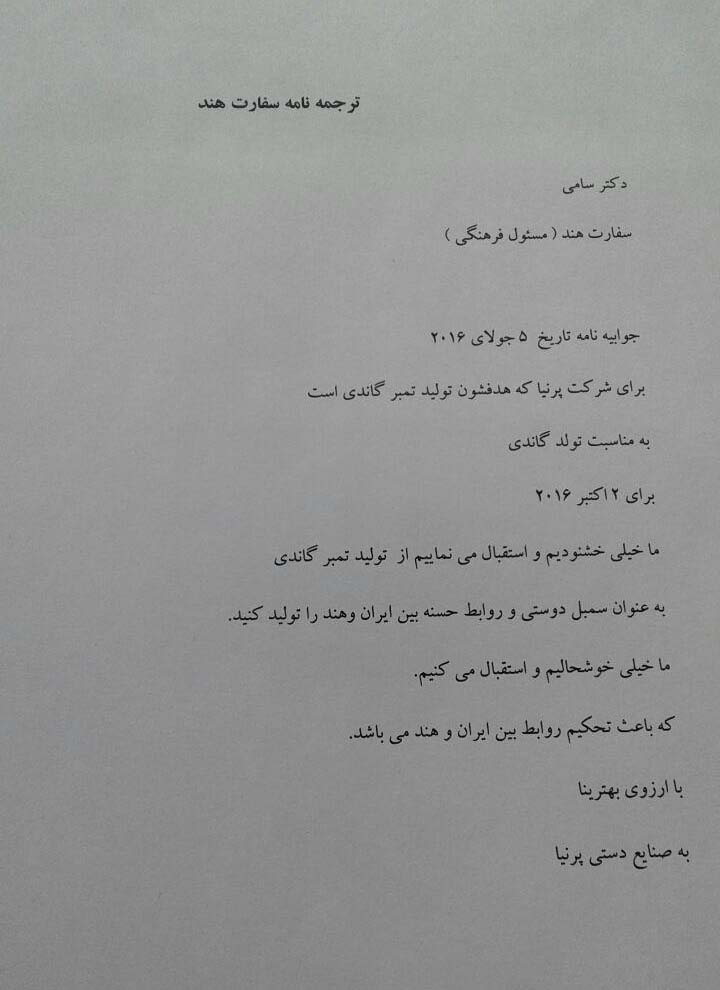 ترجمه نامه سفارت هند
دکتر سامی
سفارت هند ( مسئول فرهنگی )
جوابیه نامه تاریخ ۵ جولای ۲۰۱۶
برای شرکت پرنیا که هدفشون تولید تمبر گاندی است
به مناسبت تولد گاندی
برای ۲ اکتبر ۲۰۱۶
ما خیلی خشنودیم و استقبال می نماییم از تولید تمبر گاندی
به عنوان سمبل دوستی و روابط حسنه بین ایران وهند را تولید کنید.
ما خیلی خوشحالیم و استقبال می کنیم.
که باعث تحکیم روابط بین ایران و هند می باشد.
با ارزوی بهترینا
به صنایع دستی پرنیا